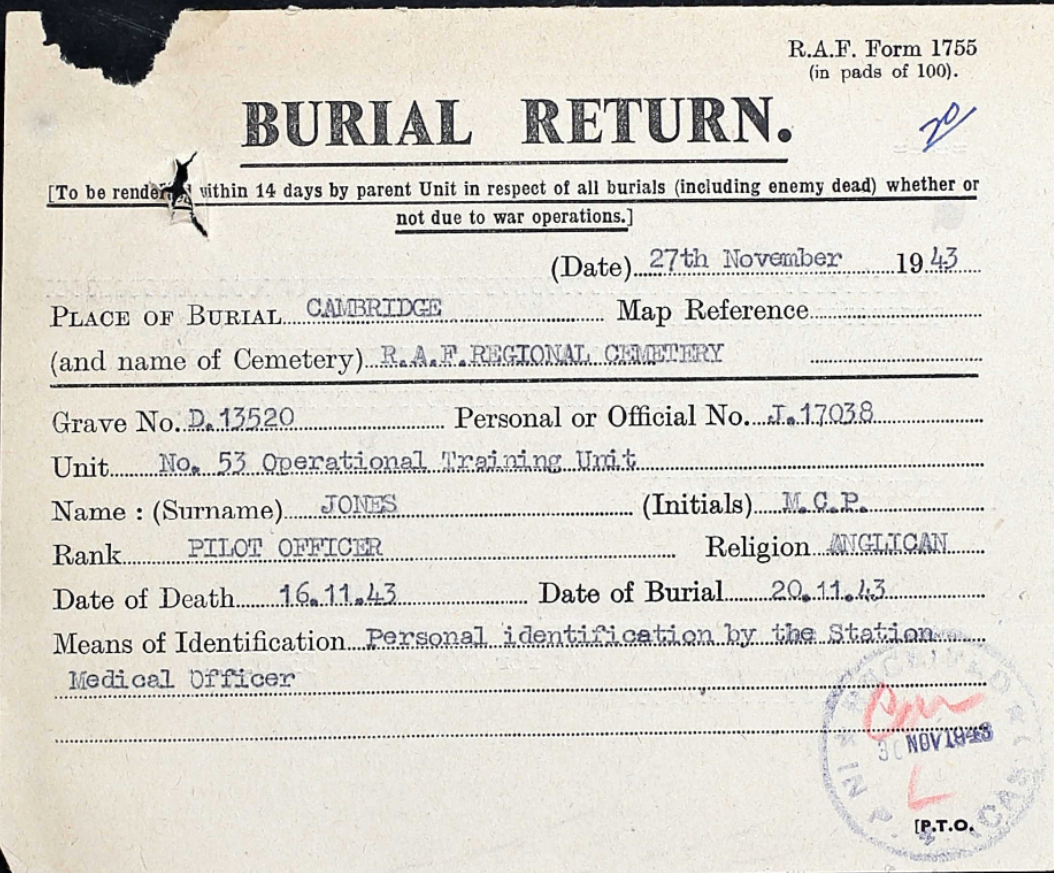 R.A.F. Form 1755
(in pads of 100).
BURIAL RETURN.
20
[To be rendered within 14 days by parent Unit in respect of all burials (including enemy dead) whether or
not due to war operations.]
(Date) 27th November 1943
PLACE OF BURIAL CAMBRIDGE Map Reference
(and name of Cemetery) R.A.F.REGIONAL CEMETERY
Grave No. D.13520 Personal or Official No. J.17038
Unit No. 53 Operational Training Unit
Name : (Surname) JONES (Initials) M.C.P.
Rank PILOT OFFICER Religion ANGLICAN
Date of Death 16.11.43 Date of Burial 20.11.43
Means of Identification Personal identification by the Station
Medical Officer
30 NOV 1943
[P.T.O.